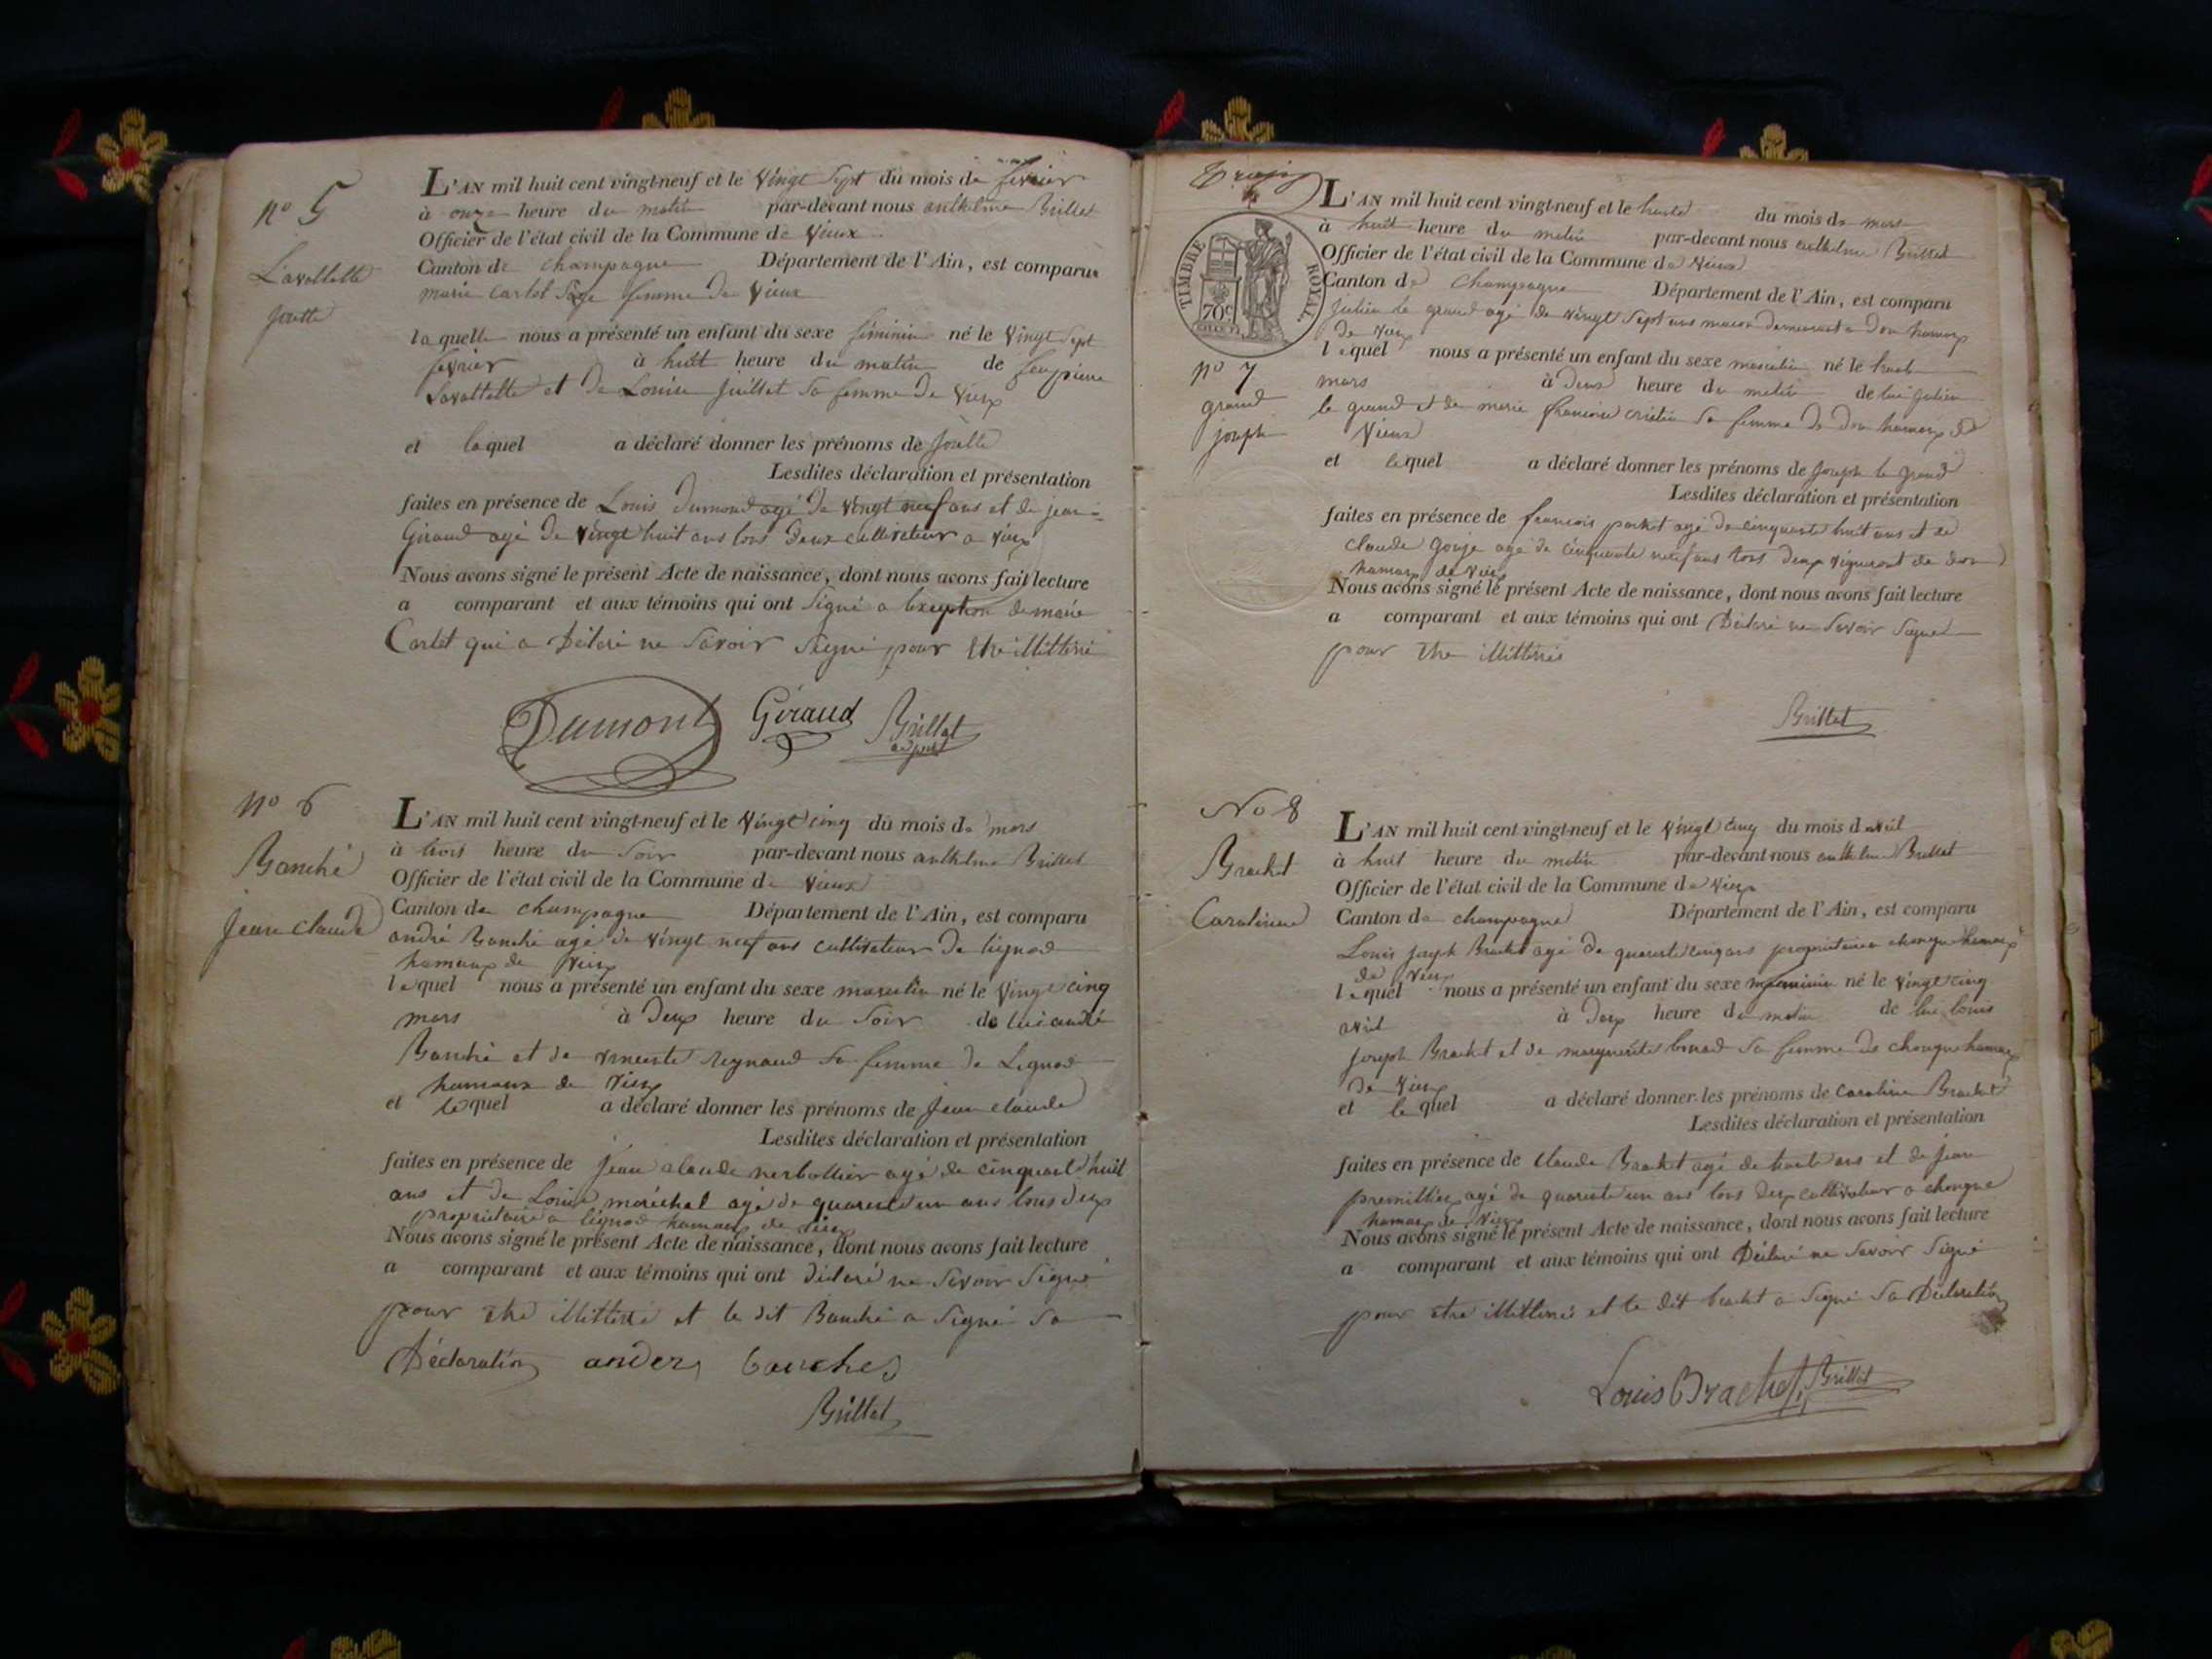 n° 5
Lavallette
Josette
L'AN mil huit cent vingt-neuf et le vingt sept du mois de fevrier
à onze heure du matin par-devant nous anthelme Brillat
Officier de l'état civil de la Commune de vieux
Canton de champagne Département de l'Ain, est comparue
marie carlet sage femme De vieux
laquelle nous a présenté un enfant du sexe féminin né le vingt sept
fevrier à huit heure du matin de feu pierre
Lavallette et De Louise juillet sa femme De vieux
et laquel a déclaré donner les prénoms de
Lesdites déclaration et présentation
faites en présence de Louis Dumond agé De vingt neuf ans et de jean
Giraud agé De vingt huit ans tous Deux cultivateur a vieux
Nous avons signé le présent Acte de naissance, dont nous avons fait lecture
a comparant et aux témoins qui ont signé a lexeption de marie
Carlet qui a Déclaré ne savoir signé pour etre illittéré
Dumont Giraud Brillat
adjoint
n° 6
Banché
Jean claude
L'AN mil huit cent vingt-neuf et le vingt cinq du mois de mars
à trois heure du soir par-devant nous anthelme Brillat
Officier de l'état civil de la Commune de vieux
Canton de champagne Département de l'Ain, est comparu
andré Banché agé de vingt neuf ans cultivateur De lignod
hameaux de vieux
lequel nous a présenté un enfant du sexe masculin né le vingt cinq
mars à Deux heure du soir de lui andré
Banché et de reynaud sa femme de Lignod
hameaux de vieux
et lequel a déclaré donner les prénoms de jean claude
Lesdites déclaration et présentation
faites en présence de jean claude agé de cinquant huit
ans et de Louis maréchal agé de quarente un ans tous deux
propriétaire a lignod hameaux de vieux
Nous avons signé le présent Acte de naissance, dont nous avons fait lecture
a comparant et aux témoins qui ont déclaré ne savoir signé
pour etre illittéré et le dit Banché a signé sa
Déclaration ander bauches
Brillat
TIMBRE ROYAL
70c
n° 7
grand
joseph
L'AN mil huit cent vingt-neuf et le du mois de mars
à huit heure du matin par-devant nous anthelme Brillat
Officier de l'état civil de la Commune de vieux
Canton de champagne Département de l'Ain, est comparu
julien le grand agé de vingt sept ans macon demeurant a don hameaux
de vieux
lequel nous a présenté un enfant du sexe masculin né le
mars à deux heure du matin de lui julien
le grand et de marie françoise sa femme de don hameaux de
vieux
et lequel a déclaré donner les prénoms de joseph le grand
Lesdites déclaration et présentation
faites en présence de francois agé de cinquante huit ans et de
claude agé de cinquante neuf ans tous deux vigneront de don
hameaux de vieux
Nous avons signé le présent Acte de naissance, dont nous avons fait lecture
a comparant et aux témoins qui ont Déclaré ne savoir signé
pour etre illittérés
Brillat
No 8
Brachet
Caroline
L'AN mil huit cent vingt-neuf et le vingt cinq du mois d avril
à huit heure du matin par-devant nous anthelme Brillat
Officier de l'état civil de la Commune de vieux
Canton de champagne Département de l'Ain, est comparu
Louis joseph Brachet agé de quarente cinq ans propriétaire a chongne hameaux
de vieux
lequel nous a présenté un enfant du sexe feminin né le vingt cinq
avril à deux heure du matin de lui louis
joseph Brachet et de marguerite sa femme de chongne hameaux
de vieux
et lequel a déclaré donner les prénoms de caroline Brachet
Lesdites déclaration et présentation
faites en présence de claude Brachet agé de trente ans et de jean
premillieux agé de quarente un ans tous deux cultivateur a chongne
hameaux de vieux
Nous avons signé le présent Acte de naissance, dont nous avons fait lecture
a comparant et aux témoins qui ont Déclaré ne savoir signé
pour etre illittérés et le dit brachet a signé sa Déclaration
Louis Brachet Brillat